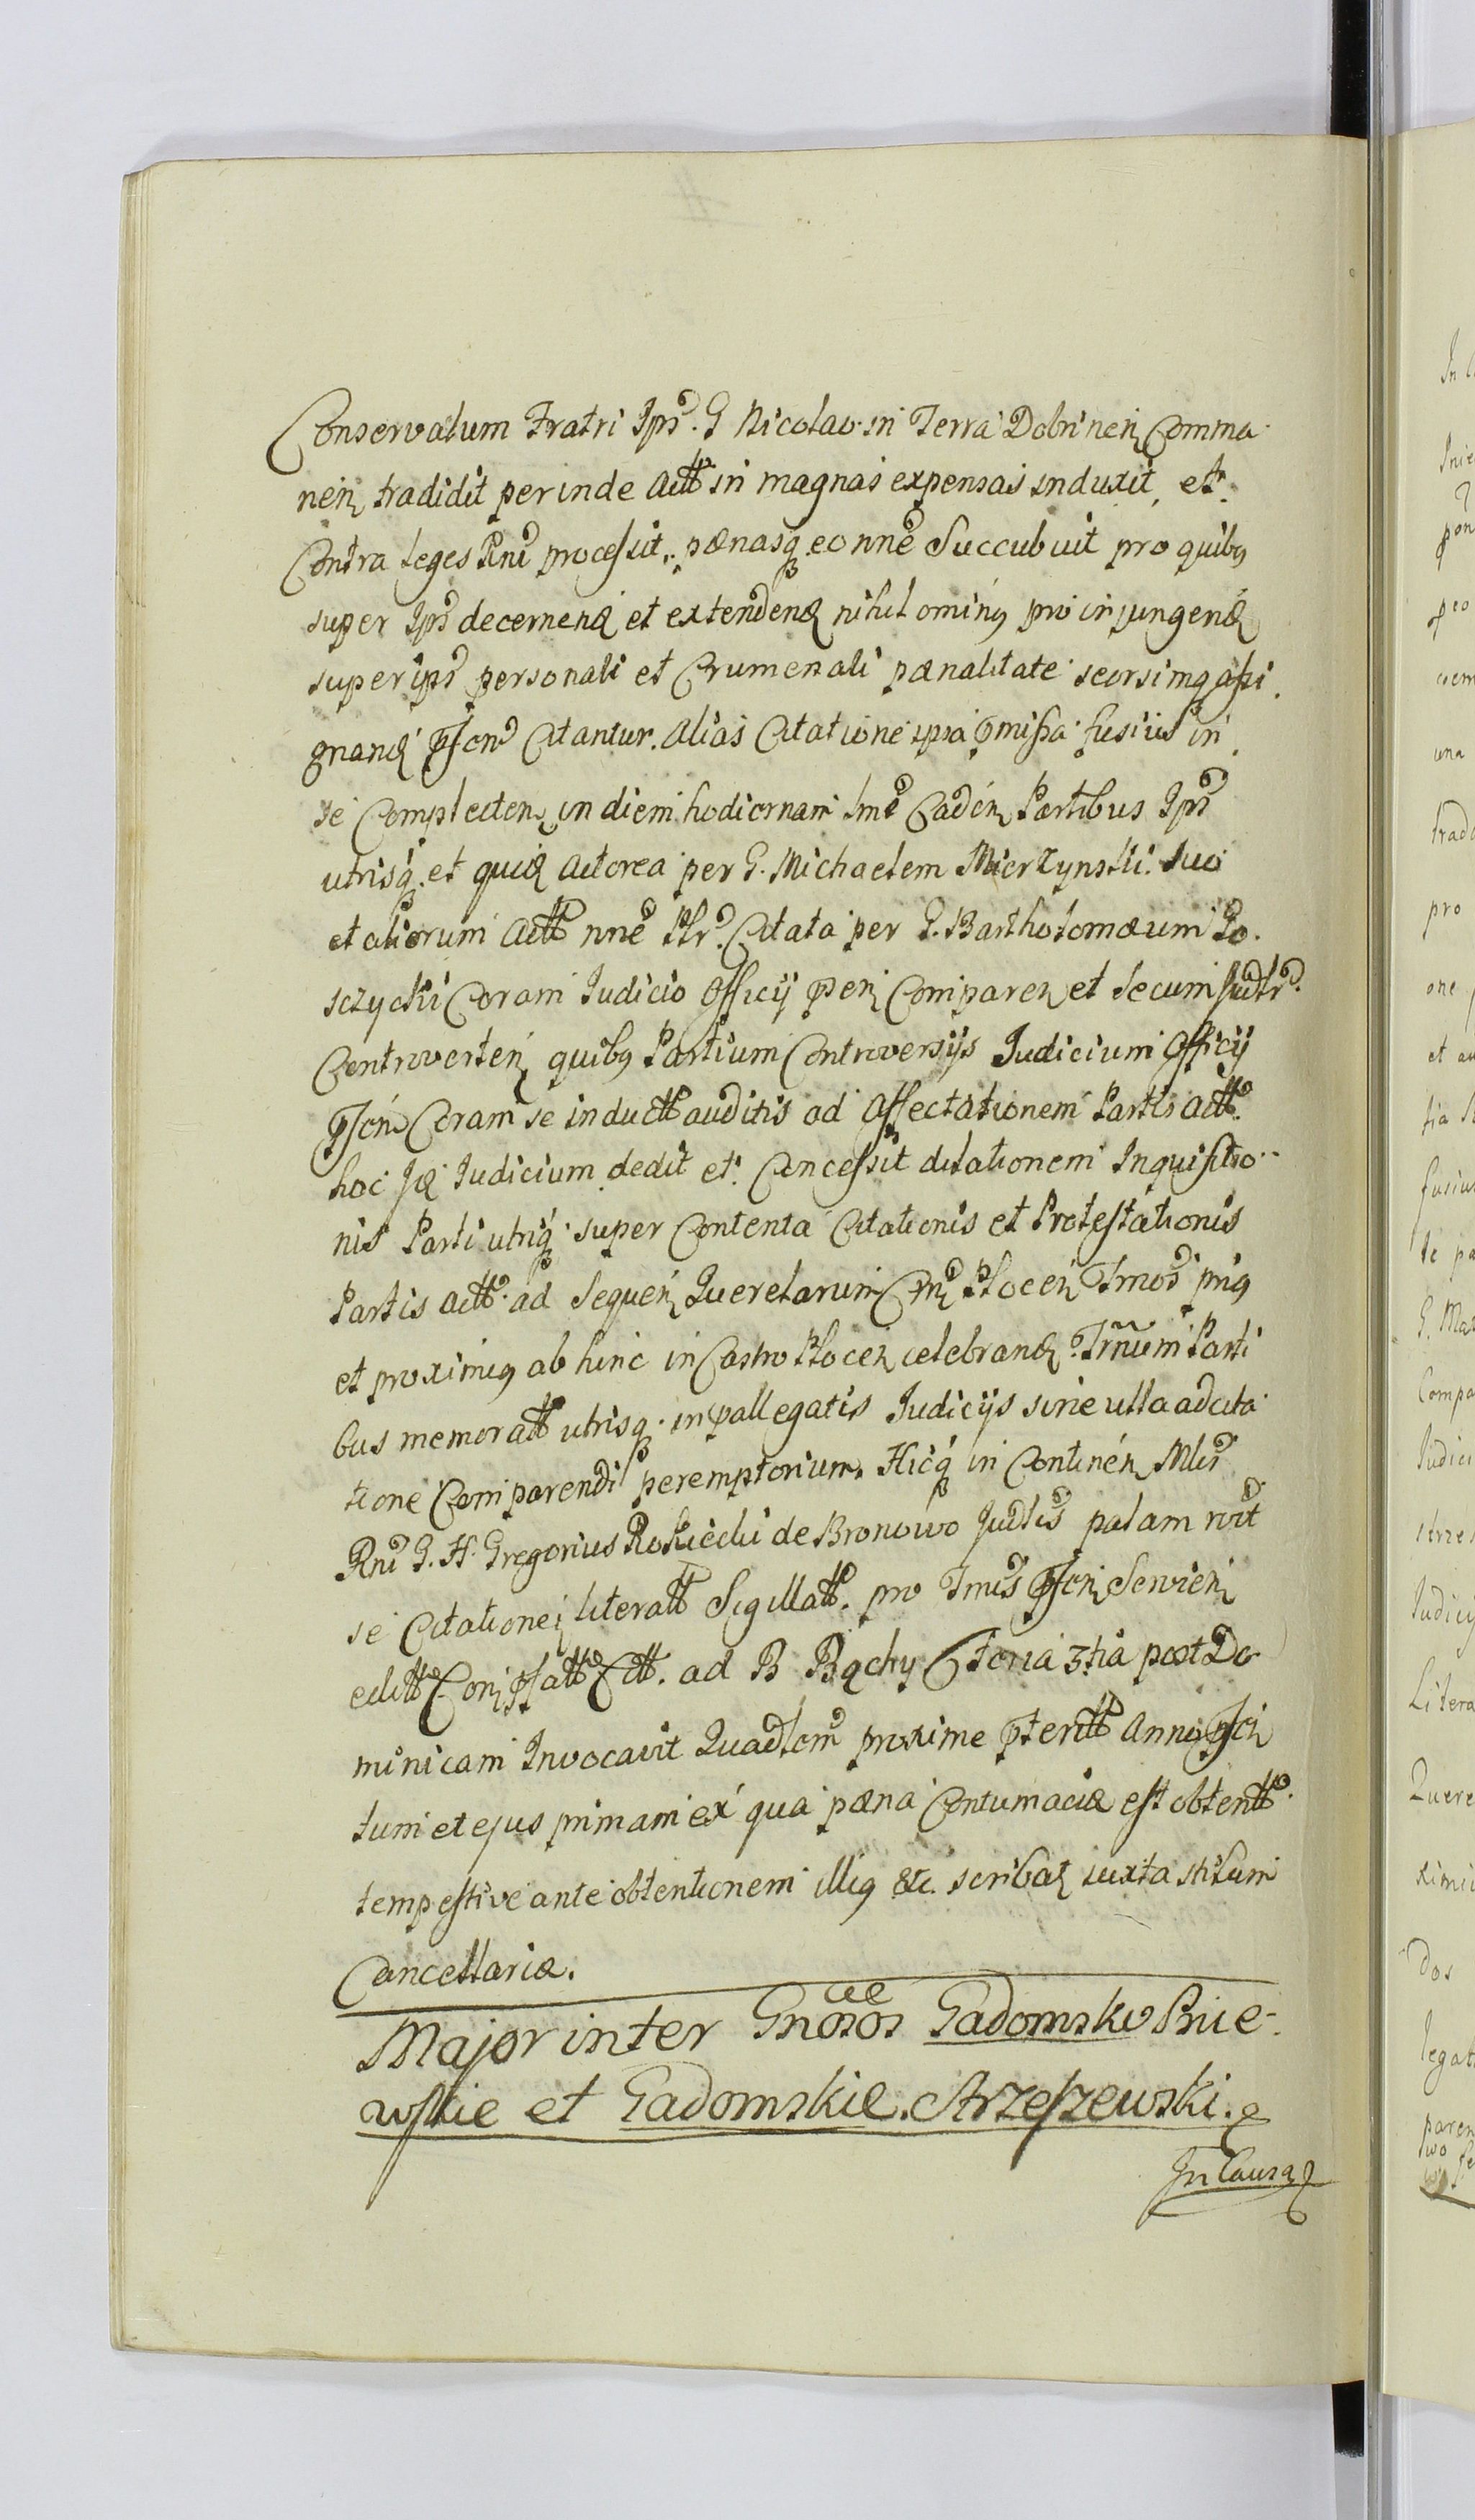 Conservatum Fratri Ips. G Nicolao in Terra Dobrinen Comma
nen tradidit perinde Actt in magnas expensas induxit, et
Contra leges Rni processit, pænasq eo nne Succubuit pro quibq
super Ips decernend et extendend nihilominq pro injungend
super ips personali et Crumenali pænalitate seorsimq assi
gnand Citantur. alias Citatione ipsa pmissa fusius in
se Complecten, in diem hodiernam tme Caden Partibus Ips
utrisq et quid Actorea per G. Michaelem Mierzynski suo
et aliorum Actt nne Citata per G. Bartholomæum Go
sczycki Coram Judicio Officij pen Comparen et secum Judlr
Controverten quibq Partium Controversijs Judicium Officij
Coram se inductt auditis ad Affectationem Partis Actt
hoc Judicium dedit et Concessit dilationem Inquisitio
nis Parti utriq super Contenta Citationis et Protestationis
Partis Actt ad Sequen Querelarum Plocen Tmos
et proximiq ab hinc in Castro Plocen celebrand. Trnum Parti
bus memoratt utrisq in pallegatis Judicijs sine ulla adcita
tione Comparendi peremptorium. Hicq in Continen Mlis
Rni G. H. Gregorius Rokicki de Bronowo Judlis palam
se Citationei literatt Sigillatt. pro Tmis Servien
editt ad B Bachy feria 3tia post Do
minicam Invocavit Quadlem proxime pteritt Anno
tum et ejus primam ex qua pæna Contumaciæ est obtentt
tempestive ante obtentionem illiq &c. scribat juxta stilum
Cancellariæ.
Major inter Gnosos Gadomskie Bnie
wskie et Gadomskie. Strzeszewski.
In Causa